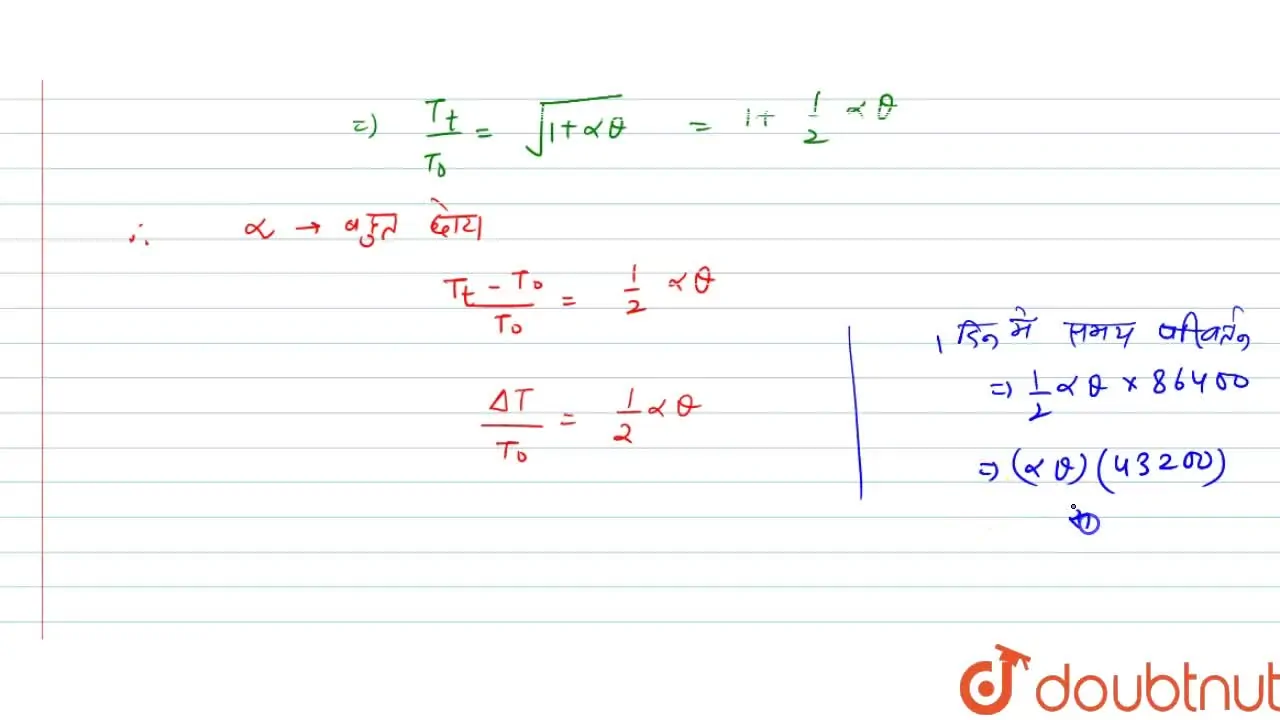 =) Tt/T0 = √1+αθ = 1+ 1/2 αθ
∴ α → बहुत छोटा
Tt - T0/T0 = 1/2 αθ
ΔT/T0 = 1/2 αθ
1 दिन में समय परिवर्तन
=> 1/2 αθ × 86400
=> (αθ)(43200)
doubtnut